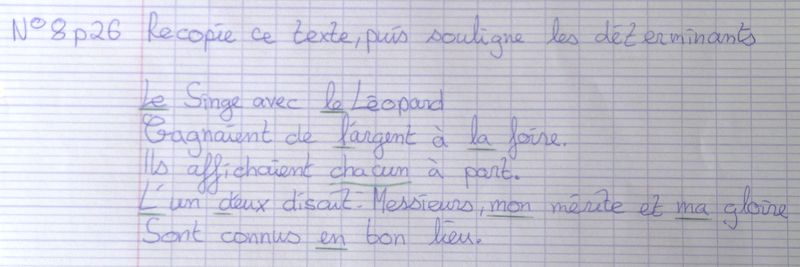 N°8 p26 Recopie ce texte, puis souligne les déterminants
Le Singe avec le Léopard
Gagnaient de l'argent à la foire.
Ils affichaient chacun à part.
L'un deux disait: Messieurs, mon mérite et ma gloire
Sont connus en bon lieu.